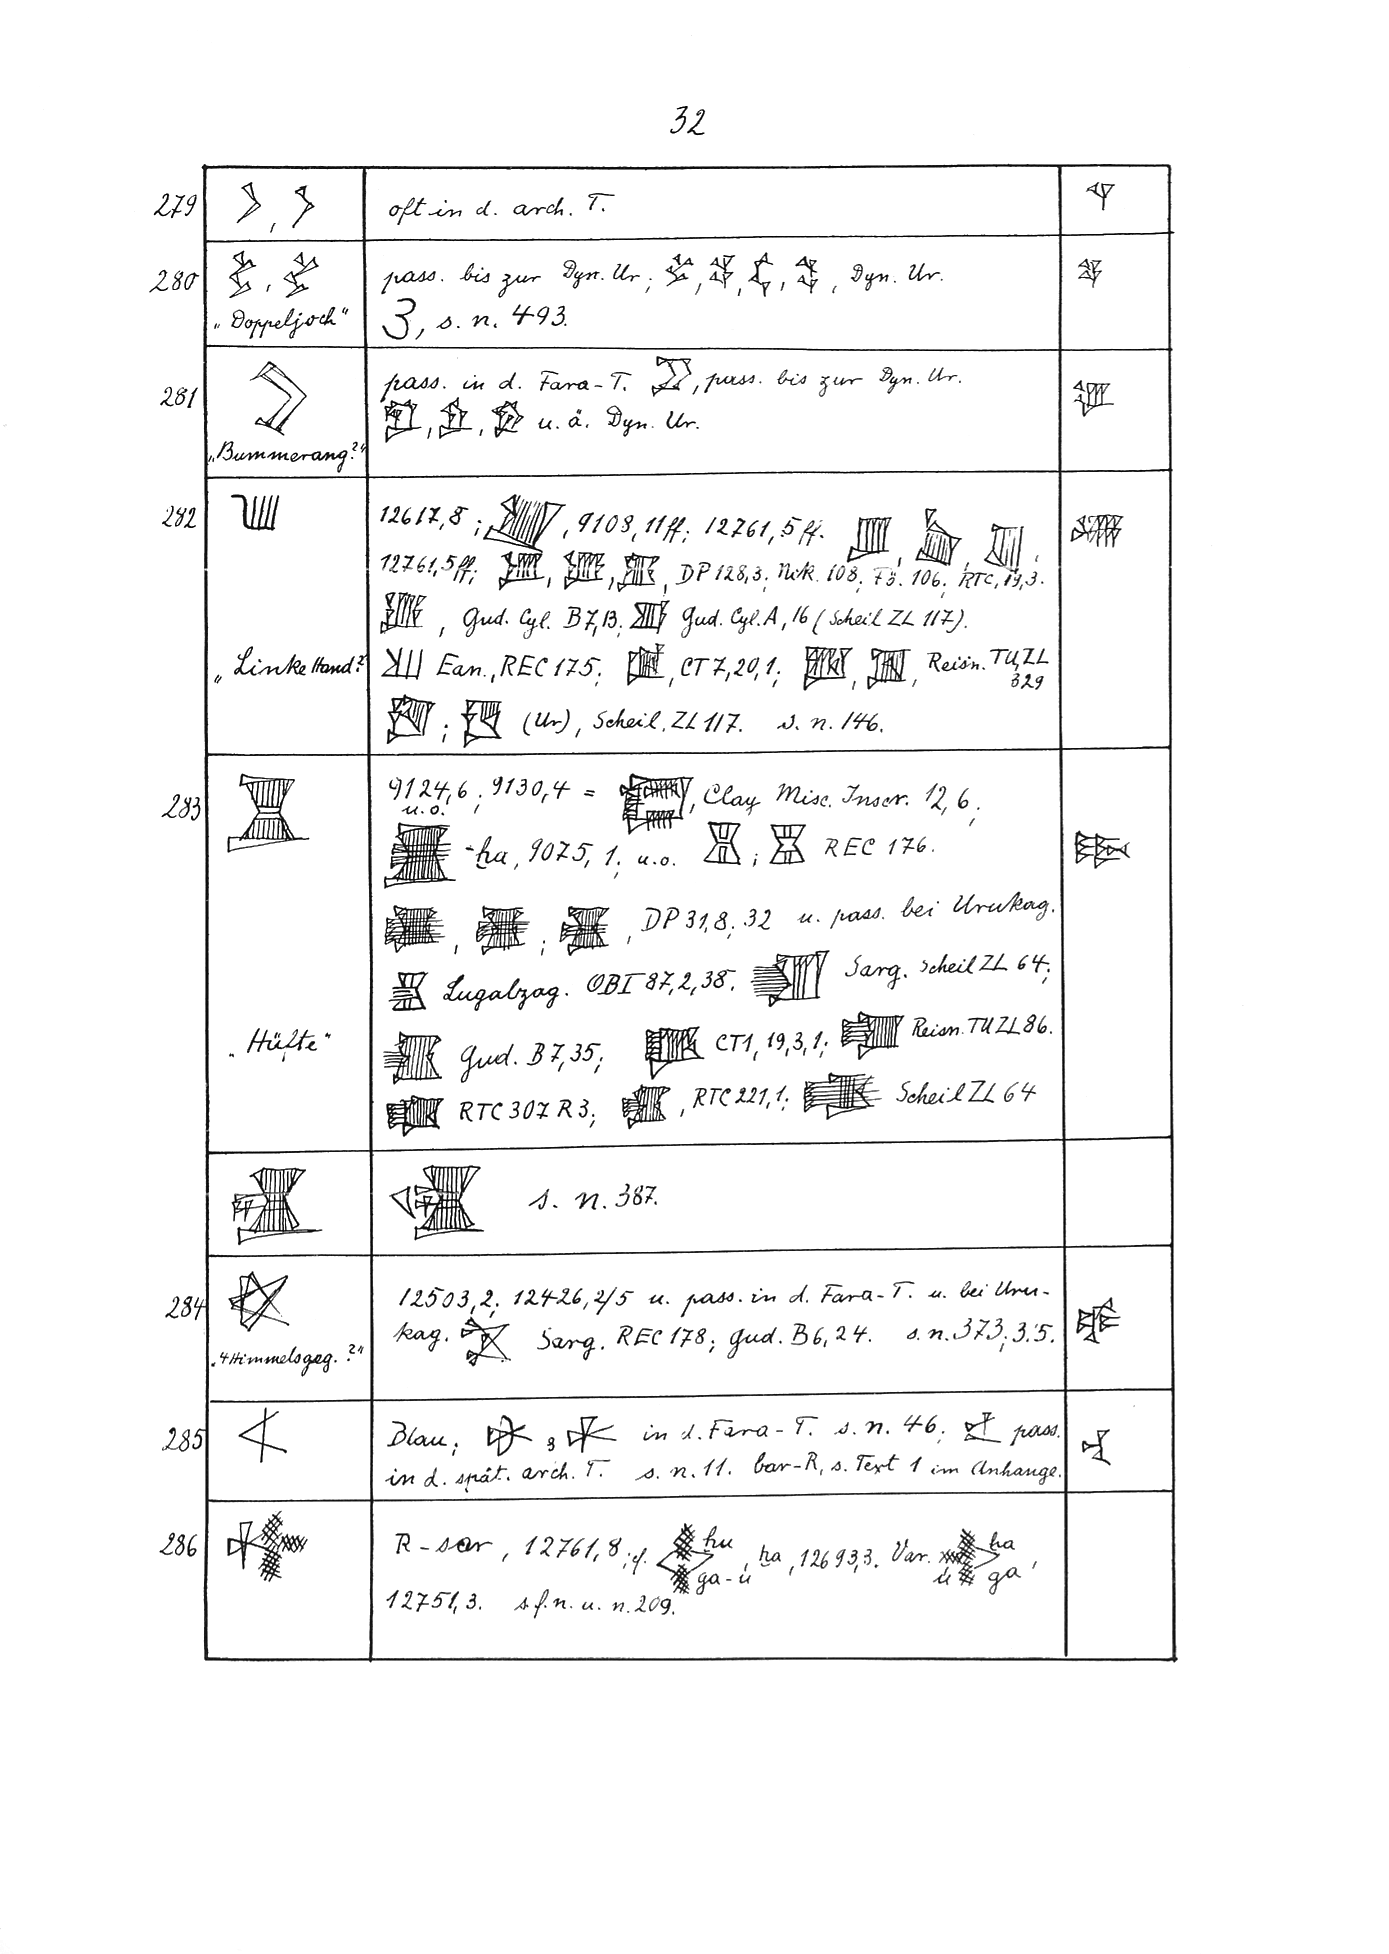 32
279 , oft in d. arch. T.
280 , pass. bis zur Dyn. Ur; , , , , Dyn. Ur.
„Doppeljoch“ 3, s. n. 493.
281 pass. in d. Fara-T. , pass. bis zur Dyn. Ur.
, , u. ä. Dyn. Ur.
„Bummerang?“
282 12617,8; , 9108,11ff; 12761,5ff. , , ,
12761,5ff; , , , DP 128,3; Nik. 108; Fö. 106; RTC, 19,3.
, Gud. Cyl. B 7,13; Gud. Cyl. A, 16 (Scheil ZL 117).
„Linke Hand?“ Ean., REC 175; , CT 7,20,1; , , Reisn. TU ZL
329
; (Ur), Scheil, ZL 117. s. n. 146.
283 9124,6; 9130,4 = , Clay Misc. Inscr. 12,6;
u. o.
-ḫa, 9075, 1; u. o. ; REC 176.
, ; , DP 31,8; 32 u. pass. bei Urukag.
Lugalzag. OBI 87,2,38. Sarg. Scheil ZL 64;
„Hüfte“ Gud. B 7,35; CT 1, 19,3,1; Reisn. TU ZL 86.
RTC 307 R 3; , RTC 221,1; Scheil ZL 64
s. n. 387.
284 12503,2; 12426,2/5 u. pass. in d. Fara-T. u. bei Uru-
kag. Sarg. REC 178; Gud. B 6,24. s. n. 373; 3.5.
„4 Himmelsgeg.?“
285 Blau; , in d. Fara-T. s. n. 46; pass.
in d. spät. arch. T. s. n. 11. bar-R, s. Text 1 im Anhange.
286 R-sar, 12761,8; cf. ḫu ga-ú , ḫa, 12693,3. Var. ú ḫa ga ,
12751,3. s. f. n. u. n. 209.